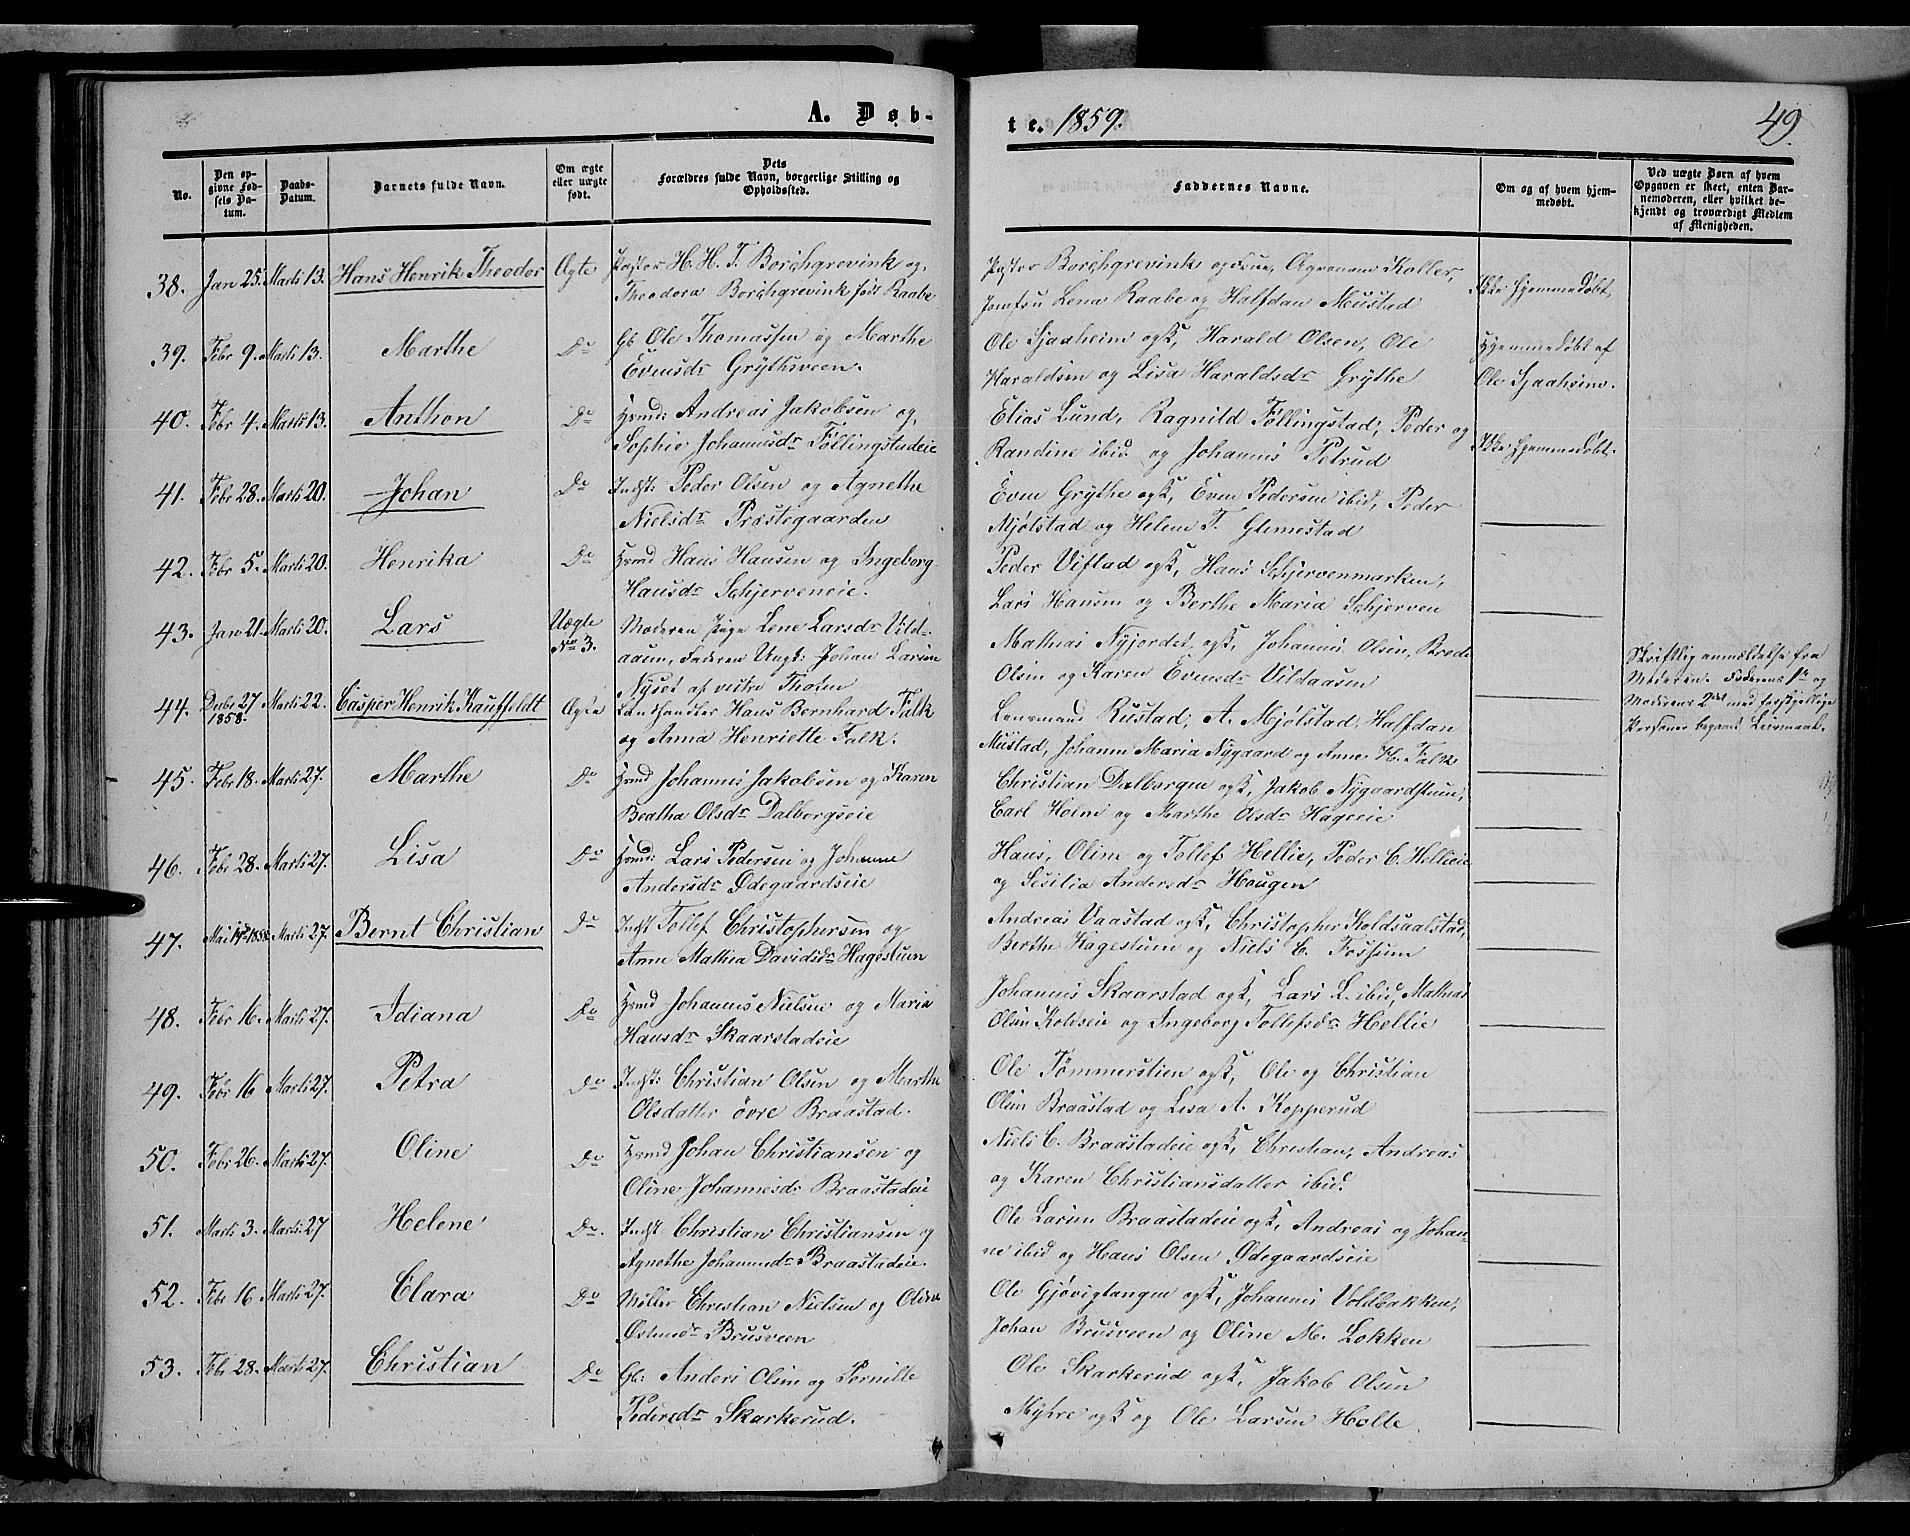 A. Døb-
te. 1859.
49.
No.
Den opgivne Fødsels Datum.
Daabs-Datum.
Barnets fulde Navn.
Om ægte eller uægte født.
Dets Forældres fulde Navn, borgerlige Stilling og Opholdssted.
Faddernes Navne.
Om og af hvem hjemmedøbt.
Ved uægte Børn af hvem Opgaven er skeet, enten Barnemoderen, eller hvilket bekjendt og troværdigt Medlem af Menigheden.
38. Jan 25. Marts 13. Hans Henrik Theodor Ægte Pastor H. H. T. Borchgrevink og
Theodora Borchgrevink født Raabe
Pastor Borchgrevink og Frue, Agronom Koller,
Jomfru Lena Raabe og Halfdan Mustad
Ikke hjemmedøbt,
39. Febr 9. Marts 13. Marthe Do Gb Ole Thomassen og Marthe
Evensdr Grythsveen.
Ole Sjaaheim ogK, Harald Olsen, Ole
Haraldsen og Lisa Haraldsdr Grythe
Hjemmedøbt af
Ole Sjaaheim.
40. Febr 4. Marts 13. Anthon Do Hmd: Andreas Jakobsen og
Sophie Johannesdr Føllingstadeie
Elias Lund, Ragnild Føllingstad, Peder og
Randine ibid og Johannes Petrud
Ikke hjemmedøbt.
41. Febr 28. Marts 20. Johan Do Indst: Peder Olsen og Agnethe
Nielsdr Præstegaarden
Even Grythe ogK, Even Pedersen ibid, Peder
Mjølstad og Helene T. Glemestad
42. Febr 5. Marts 20. Henrika Do Hmd Hans Hansen og Ingeborg
Hansdr Schjerveneie.
Peder Viflad ogK, Hans Schjervenmarken,
Lars Hansen og Berthe Maria Schjerven
43. Jan 21. Marts 20. Lars Uægte
No 3. Moderen Pige Lene Larsdr Vild-
aasen, Faderen Ungk: Johan Larsen
Nyset af vestre Thoten
Mathias Nyjordet ogK, Johannes Olsen, Brede
Olsen og Karen Evensdr Vildaasen
Skriftlig anmældelse fra
Moderen. Faderens 1ste og
Moderens 2det med forskjellige
Personer begaaet Leiermaal.
44. Decbr 27
1858. Marts 22. Casper Henrik Kauffeldt Ægte Landhandler Hans Bernhard Falk
og Anna Henriette Falk.
Lensmand Rustad, A. Mjølstad, Halfdan
Mustad, Johanne Maria Nygaard og Anne H. Falk
45. Febr 18. Marts 27. Marthe Do Hmd Johannes Jakobsen og Karen
Beatha Olsdr Dalborgseie
Christian Dalborgen ogK, Jakob Nygaardstuen,
Carl Holm og Marthe Olsdr Hageeie
46. Febr 28. Marts 27. Lisa Do Hmd: Lars Pedersen og Johanne
Andersdr Ødegaardseie
Hans, Oline og Tollef Hellie, Peder C. Hellieie
og Sesilia Andersdr Haugen
47. Mai 1858. Marts 27. Bernt Christian Do Indst Tollef Christophersen og
Anne Mathea Davidsdr Hagestuen
Andreas Vaastad ogK, Christopher Koldsaalstad,
Berthe Hagestuen og Niels C. Fossum
48. Febr 16. Marts 27. Idiana Do Hmd Johannes Nielsen og Maria
Hansdr Skaarstadeie
Johannes Skaarstad ogK, Lars L. ibid, Mathias
Olsen Koldseie og Ingeborg Tollefsdr Hellie
49. Febr 16 Marts 27. Petra Do Indst: Christian Olsen og Marthe
Olsdatter øvre Braastad.
Ole Tømmerstien ogK, Ole og Christian
Olsen Braastad og Lisa A. Kopperud
50. Febr 26. Marts 27. Oline Do Hmd Johan Christiansen og
Oline Johannesdr Braastadeie
Niels C. Braastadeie ogK, Christian, Andreas
og Karen Christiansdatter ibid.
51. Marts 3. Marts 27 Helene Do. Indst Christian Christiansen og
Agnethe Johannesdr Braastadeie.
Ole Larsen Braastadeie ogK, Andreas og Johan-
ne ibid og Hans Olsen Ødegaardseie
52. Febr 16 Marts 27. Clara Do Møller Christian Nielsen og Oline
Ostensdr Brusveen
Ole Gjøvigtangen ogK, Johannes Voldbakken,
Johan Brusveen og Oline M. Lokken
53. Febr 28. Marts 27. Christian Do Gb: Anders Olsen og Pernille
Pedersdr Skarkerud.
Ole Skarkerud ogK, Jakob Olsen
Myhre ogK og Ole Larsen Holte.